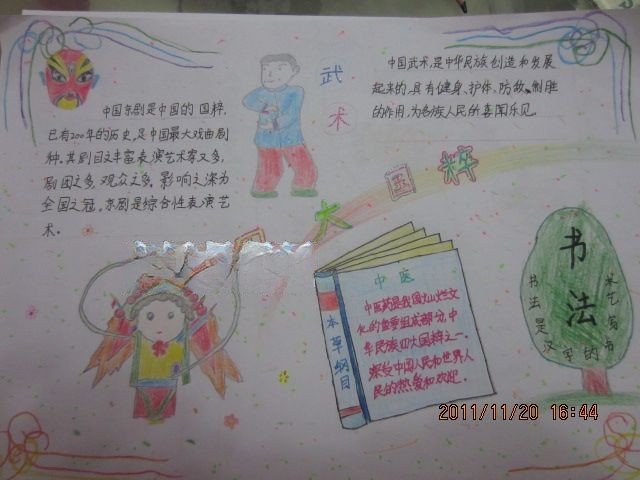 中国京剧是中国的国粹,
已有200年的历史,是中国最大戏曲剧
种。其剧目之丰富表演艺术家之多,
剧团之多,观众之多,影响之深为
全国之冠。京剧是综合性表演艺
术。
武
术
中国武术,是中华民族创造和发展
起来的,具有健身、护体、防敌、制胜
的作用,为各族人民所喜闻乐见。
四大国粹
中医
中医药是我国灿烂文
化的重要组成部分,中
华民族四大国粹之一。
深受中国人民和世界人
民的热爱和欢迎.
本草纲目
书法
书法是汉字的书
写艺术
2011/11/20 16:44